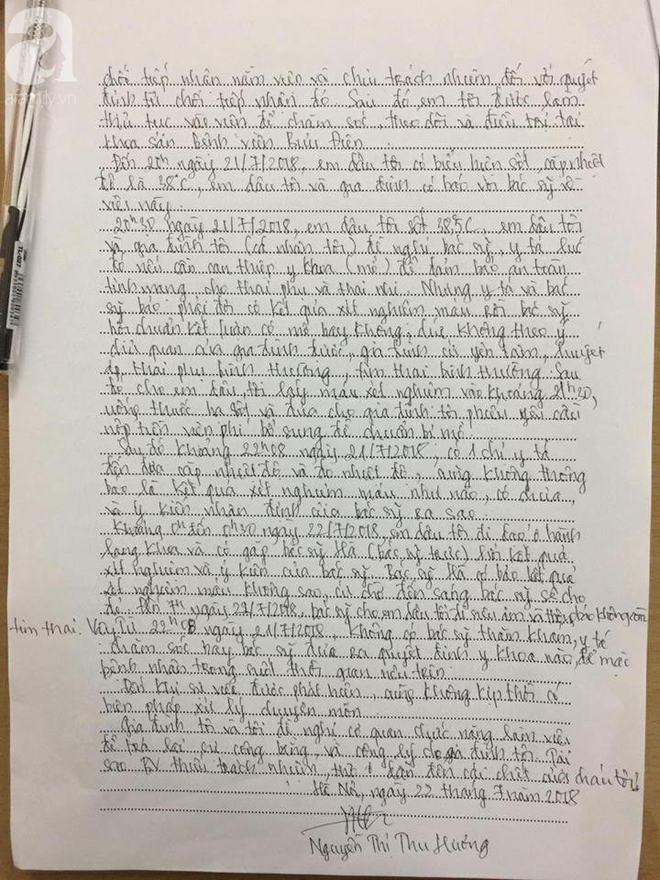 chối tiếp nhận nằm viện và chịu trách nhiệm đối với quyết
định từ chối tiếp nhận đó. Sau đó em tôi được làm
thủ tục vào viện để chăm sóc, theo dõi và điều trị tại
khoa sản Bệnh viện Bưu Điện.
Đến 20h ngày 21/7/2018, em dâu tôi có biểu hiện sốt, cặp nhiệt
độ là 38°C, em dâu tôi và gia đình có báo với bác sỹ về
việc này.
20h30 ngày 21/7/2018, em dâu tôi sốt 38,5°C, em dâu tôi
và gia đình tôi (cá nhân tôi) đề nghị bác sỹ, y tá lúc
đó nếu cần can thiệp y khoa (mổ) để đảm bảo an toàn
tính mạng cho thai phụ và thai nhi. Nhưng y tá và bác
sỹ bảo phải đợi có kết quả xét nghiệm máu rồi bác sỹ
hội chuẩn kết luận có mổ hay không, chứ không theo ý
chủ quan của gia đình được, gia đình cứ yên tâm, huyết
áp thai phụ bình thường, tim thai bình thường. Sau
đó cho em dâu tôi lấy máu xét nghiệm vào khoảng 21h30,
uống thuốc hạ sốt và đưa cho gia đình tôi phiếu yêu cầu
nộp tiền viện phí bổ sung để chuẩn bị mổ.
Sau đó khoảng 22h08 ngày 21/7/2018, có 1 chị y tá
đến đưa cặp nhiệt độ và đo nhiệt độ, cũng không thông
báo là kết quả xét nghiệm máu như nào, có chưa,
và ý kiến nhận định của bác sỹ ra sao.
Khoảng 0h đến 0h30 ngày 22/7/2018, em dâu tôi đi dạo ở hành
lang khoa và có gặp bác sỹ Hà (bác sỹ trực) hỏi kết quả
xét nghiệm và ý kiến của bác sỹ. Bác sỹ Hà có bảo kết quả
xét nghiệm máu không sao, cứ chờ đến sáng bác sỹ sẽ cho
đẻ. Đến 7h ngày 22/7/2018, bác sỹ cho em dâu tôi đi siêu âm và thông báo không còn
tim thai. Vậy từ 22h08 ngày 21/7/2018, không có bác sỹ thăm khám, y tá
chăm sóc hay bác sỹ đưa ra quyết định y khoa nào, để mặc
bệnh nhân trong suốt thời gian nêu trên.
Đến khi sự việc được phát hiện, cũng không kịp thời có
biện pháp xử lý chuyên môn.
Gia đình tôi và tôi đề nghị cơ quan chức năng làm việc
để trả lại sự công bằng, và công lý cho gia đình tôi. Tại
sao BV thiếu trách nhiệm, thờ ơ dẫn đến cái chết của cháu tôi!
Hà Nội, ngày 22 tháng 7 năm 2018
Nguyễn Thị Thu Hương